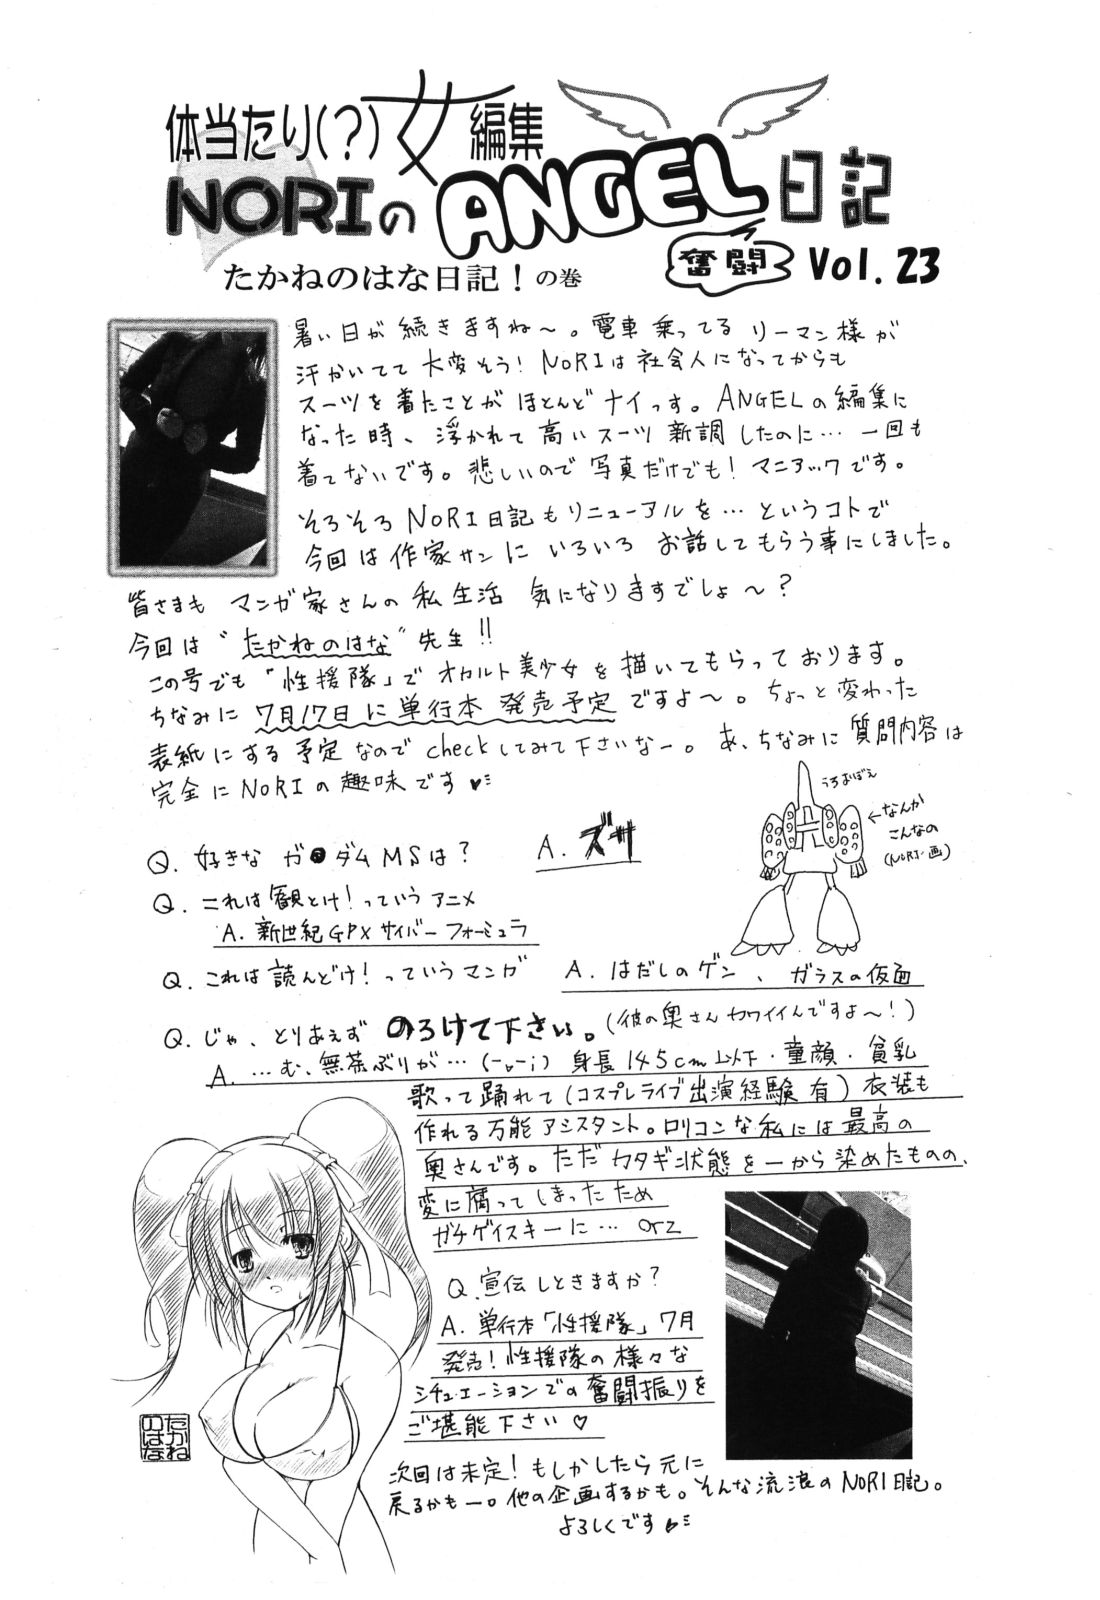 体当たり(?)女編集
NORIのANGEL日記
奮闘
Vol.23
たかねのはな日記！の巻
暑い日が続きますね〜。電車乗ってるリーマン様が
汗かいてて大変そう！NORIは社会人になってからも
スーツを着たことがほとんどナイっす。ANGELの編集に
なった時、浮かれて高いスーツ新調したのに…一回も
着てないです。悲しいので写真だけでも！マニアックです。
そろそろNORI日記もリニューアルを…というコトで
今回は作家サンにいろいろお話してもらう事にしました。
皆さまもマンガ家さんの私生活気になりますでしょ〜？
今回は“たかねのはな”先生!!
この号でも「性援隊」でオカルト美少女を描いてもらっております。
ちなみに7月17日に単行本発売予定ですよ〜。ちょっと変わった
表紙にする予定なのでcheckしてみて下さいなー。あ、ちなみに質問内容は
完全にNORIの趣味です♥
うろおぼえ
←なんか
こんなの
(NORI・画)
Q. 好きなガ●ダムMSは？
A. ズサ
Q. これは観とけ！っていうアニメ
A. 新世紀GPXサイバーフォーミュラ
Q. これは読んどけ！っていうマンガ
A. はだしのゲン、ガラスの仮面
Q. じゃ、とりあえずのろけて下さい。(彼の奥さんカワイイんですよ〜！)
A. …む、無茶ぶりが…(-｡-;) 身長145cm以下・童顔・貧乳
歌って踊れて(コスプレライブ出演経験有)衣装も
作れる万能アシスタント。ロリコンな私には最高の
奥さんです。ただカタギ状態を一から染めたものの、
変に腐ってしまったため
ガチゲイスキーに…orz
Q. 宣伝しときますか？
A. 単行本「性援隊」7月
発売！性援隊の様々な
シチュエーションでの奮闘振りを
ご堪能下さい♡
たかね
のはな
次回は未定！もしかしたら元に
戻るかもー。他の企画するかも。そんな流浪のNORI日記。
よろしくです♥